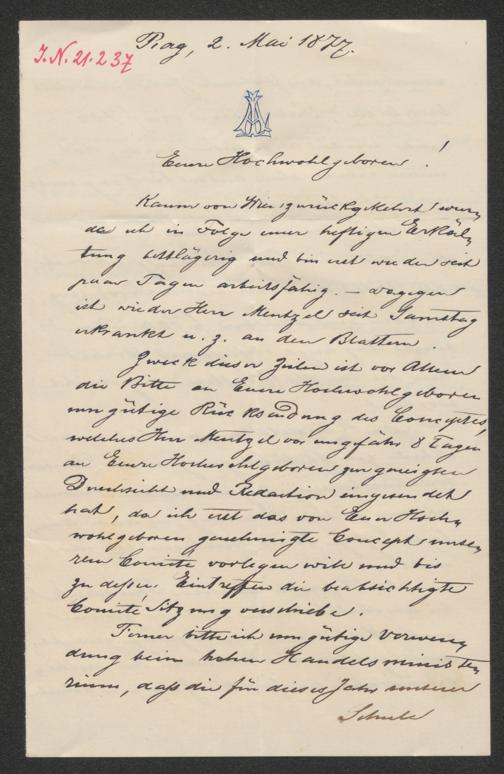 J.N. 21.237
Prag, 2. Mai 1877.
Eure Hochwohlgeboren!
Kaum von Wien zurückgekehrt wur„
de ich in Folge einer heftigen Erkäl„
tung bettlägerig und bin erst wieder seit
paar Tagen arbeitsfähig. — dagegen
ist wieder Herr Mentzel seit Samstag
erkrankt u. z. an den Blattern.
Zweck dieser Zeilen ist vor Allem
die Bitte an Eure Hochwohlgeboren
um gütige Rücksendung des Conceptes,
welches Herr Mentzel vor ungefähr 8 Tagen
an Eure Hochwohlgeboren zur geneigten
Durchsicht und Redaction eingesendet
hat, da ich erst das von Euer Hoch„
wohlgeboren genehmigte Concept unse„
ren Comité vorlegen will und bis
zu dessen Eintreffen die beabsichtigte
Comité Sitzung verschiebe.
Ferner bitte ich um gütige Verwen„
dung beim hohen Handelsministe„
rium, daß die für dieses Jahr unserer
Schule